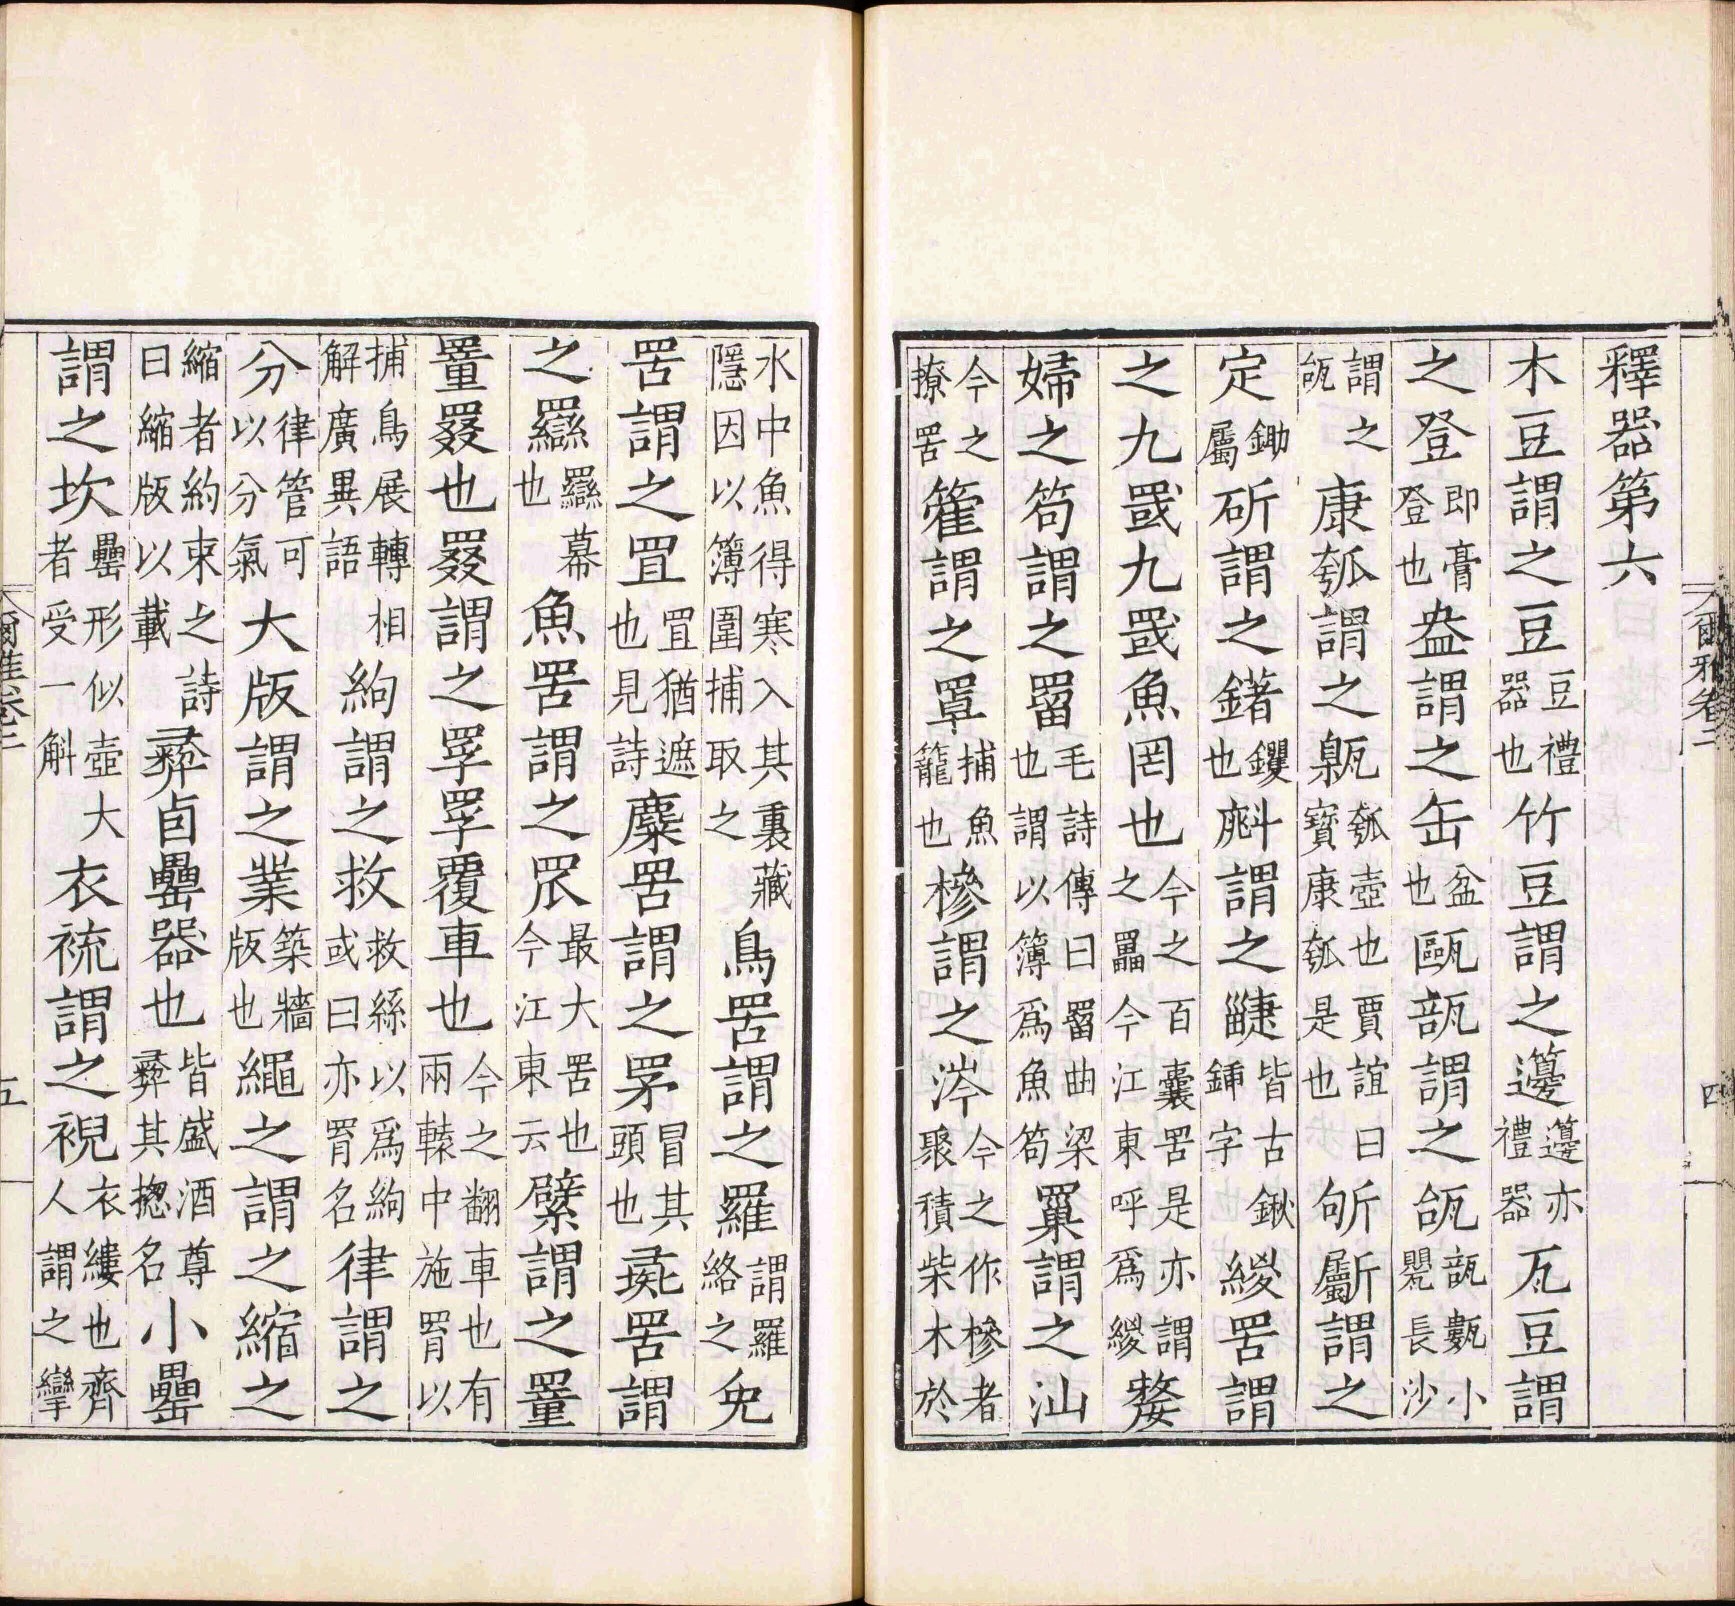 爾雅卷二 四
釋器第六
木豆謂之豆豆禮器也竹豆謂之籩籩亦禮器瓦豆謂
之登即膏登也盎謂之缶盆也甌瓿謂之瓵瓿甊小甖長沙
謂之瓵康瓠謂之甈瓠壺也賈誼曰寶康瓠是也斪斸謂之
定鋤屬斫謂之鐯钁也𣂁謂之疀皆古鍬鍤字緵罟謂
之九罭九罭魚罔也今之百囊罟是亦謂之䍡今江東呼爲緵嫠
婦之笱謂之罶毛詩傳曰罶曲梁也謂以簿爲魚笱罺謂之汕
今之撩罟篧謂之罩捕魚籠也槮謂之涔今之作槮者聚積柴木於
水中魚得寒入其裏藏隱因以簿圍捕取之鳥罟謂之羅謂羅絡之兔
罟謂之罝罝猶遮也見詩麋罟謂之罞冒其頭也彘罟謂
之羉羉幕也魚罟謂之罛最大罟也今江東云繴謂之罿
罿罬也罬謂之罦罦覆車也今之翻車也有兩轅中施罥以
捕鳥展轉相解廣異語絇謂之救救絲以爲絇或曰亦罥名律謂之
分律管可以分氣大版謂之業築牆版也繩之謂之縮之
縮者約束之詩曰縮版以載彝卣罍器也皆盛酒尊彝其揔名小罍
謂之坎罍形似壺大者受一斛衣裗謂之䘽衣縷也齊人謂之攣
爾雅卷二 五